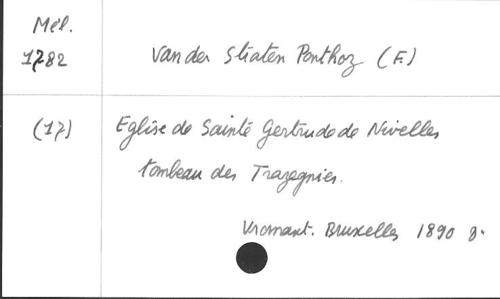 Mél.
1782
Van der Straten Ponthoz (F.)
(17)
Eglise de Sainte Gertrude de Nivelles
tombeau des Trazegnies.
Vromant. Bruxelles 1890 8.